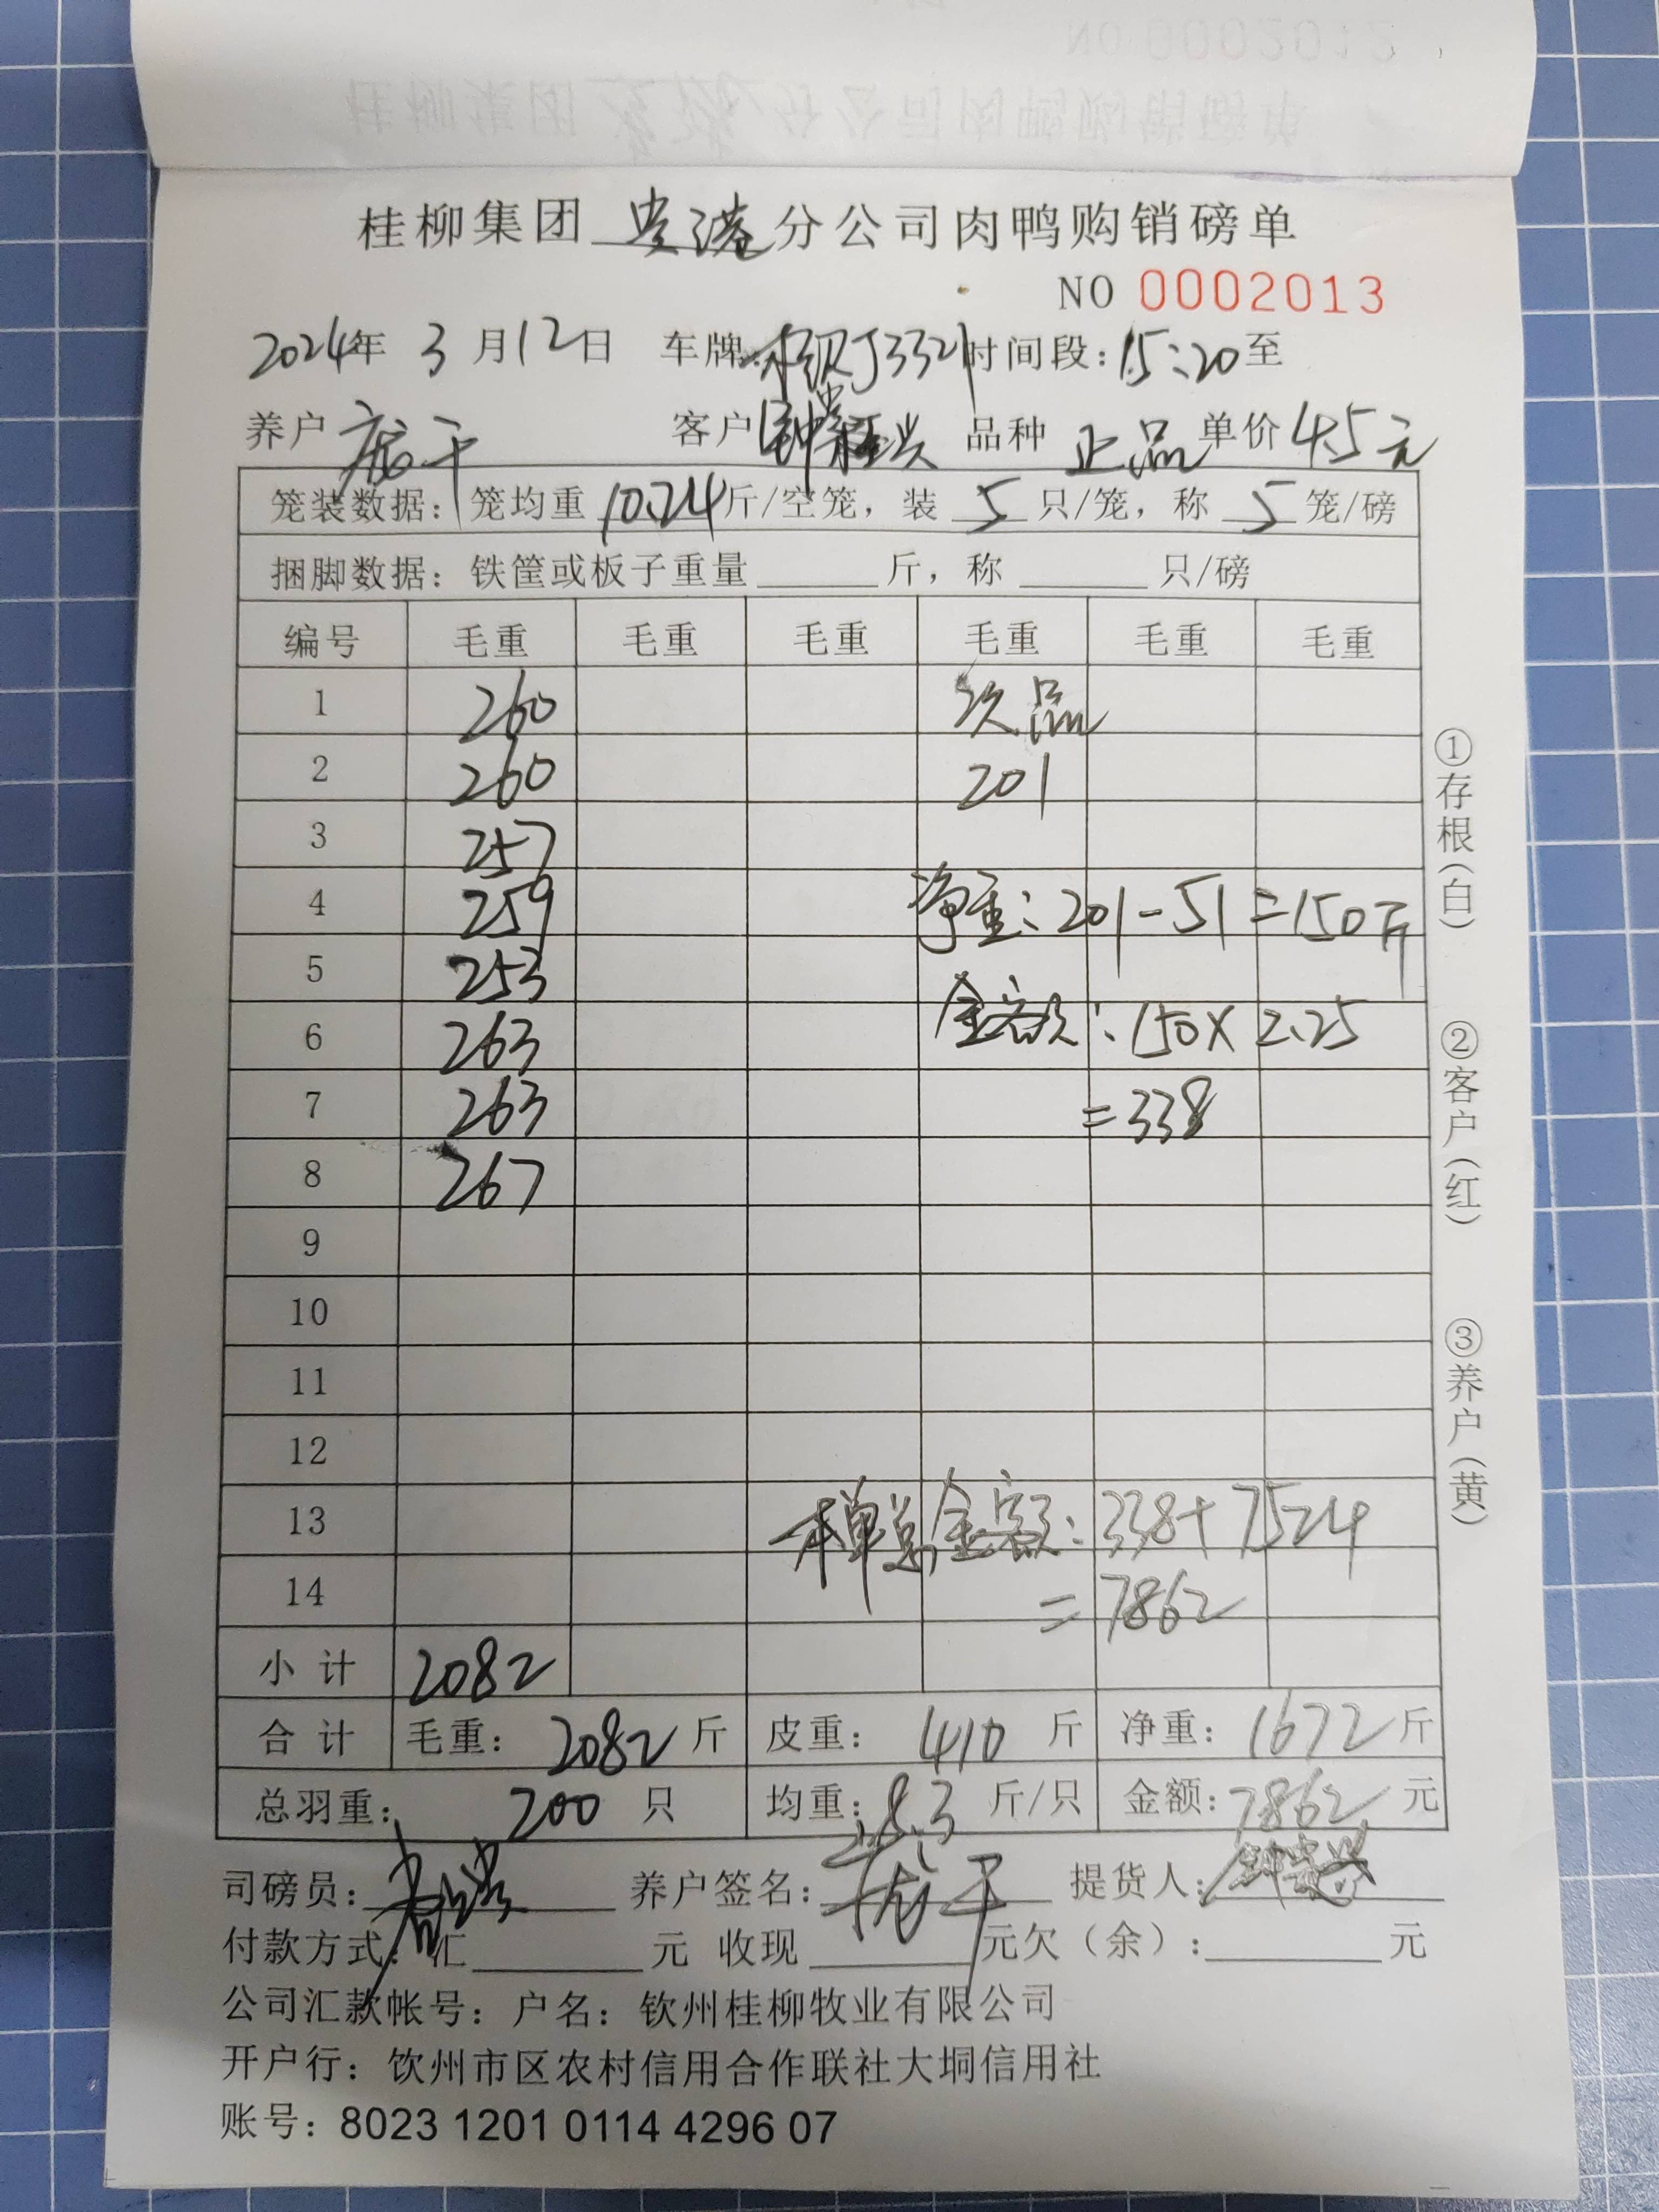 桂柳集团 贵港 分公司肉鸭购销磅单
NO 0002013
2024年 3 月 12 日 车牌: J3321 时间段: 15:20 至
养户 庞干 客户 钟贵兴 品种 正品 单价 4.5元
笼装数据: 笼均重 10.24 斤/空笼, 装 5 只/笼, 称 5 笼/磅
捆脚数据: 铁筐或板子重量 斤, 称 只/磅
编号 毛重 毛重 毛重 毛重 毛重 毛重
1 260 次品
2 260 201
3 257
4 259 净重: 201-51=150斤
5 253
6 263 金额: 150×2.25
7 263 =338
8 267
9
10
11
12
13 本单总金额: 338+7524
14 =7862
小 计 2082
合 计 毛重: 2082 斤 皮重: 410 斤 净重: 1672 斤
总羽重: 200 只 均重: 8.3 斤/只 金额: 7862 元
司磅员: 养户签名: 庞干 提货人: 钟贵兴
付款方式: 汇 元 收现 元欠(余): 元
公司汇款帐号: 户名: 钦州桂柳牧业有限公司
开户行: 饮州市区农村信用合作联社大垌信用社
账号: 8023 1201 0114 4296 07
①存根(白)
②客户(红)
③养户(黄)